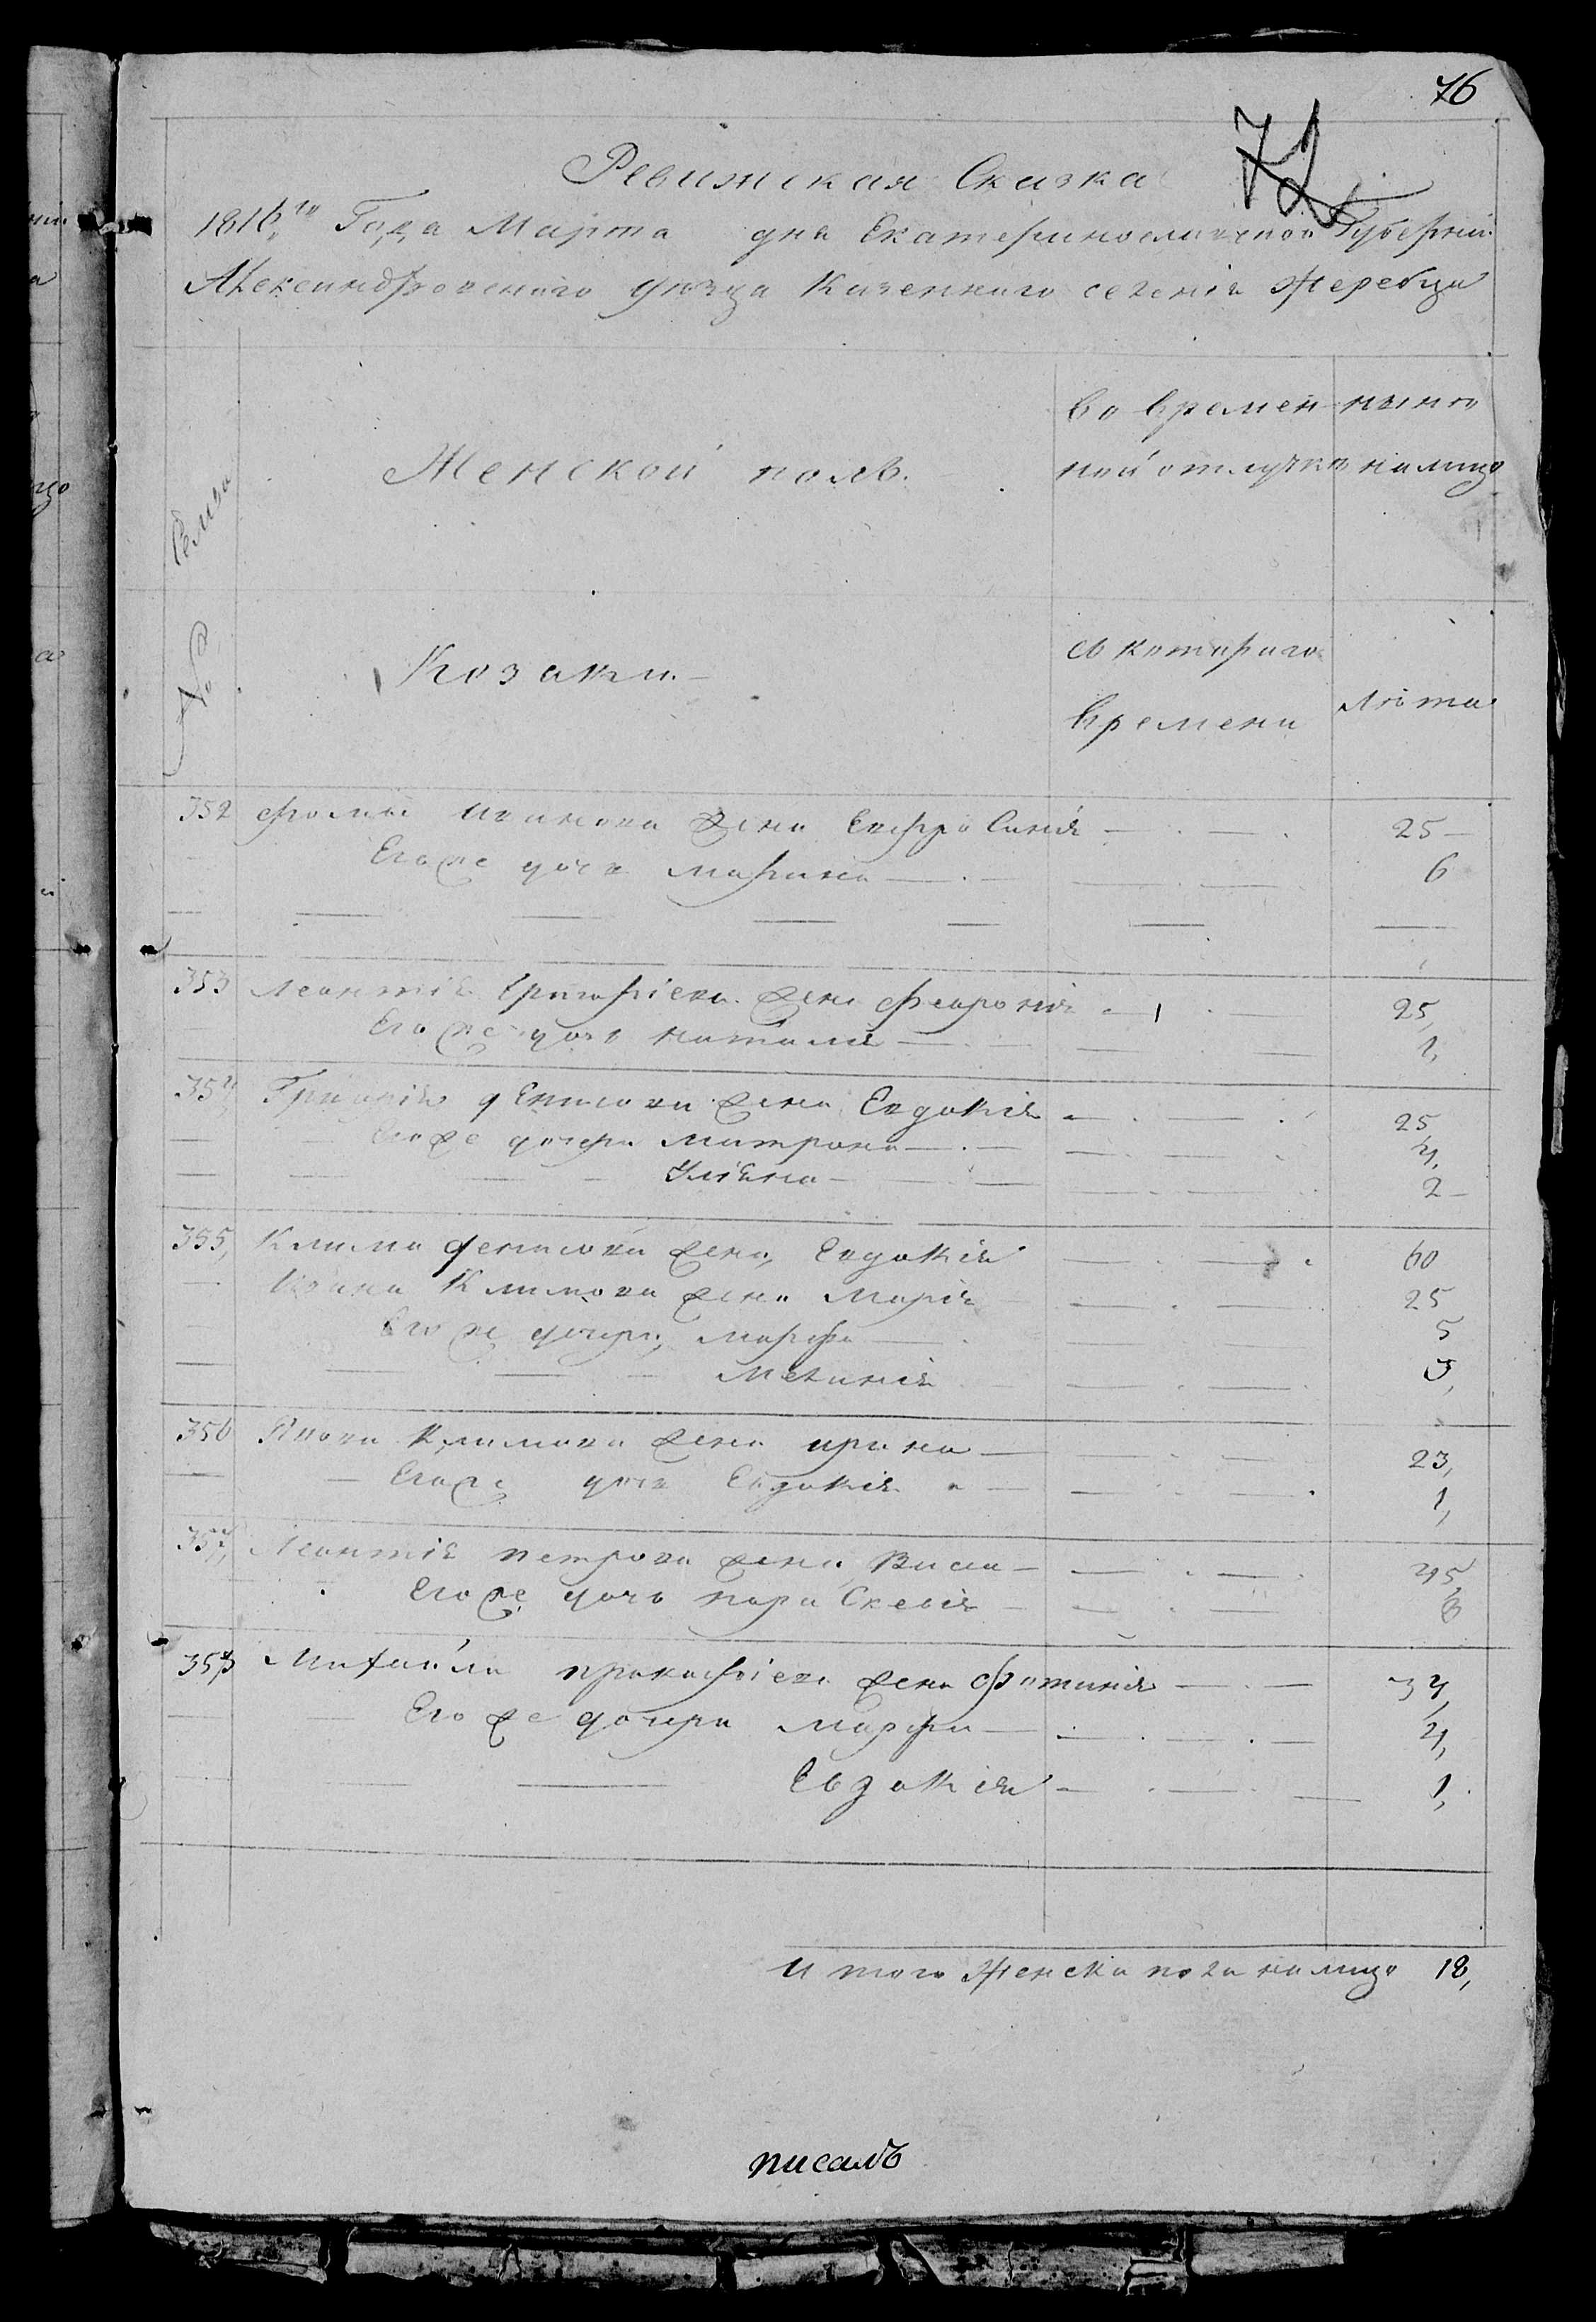 76
72
Ревижская Сказка
1816,го Года Марта дня Екатеринославской Губернии
Александровского уѣзда Казенного селенія Жеребца
№ Семьи
Женской полъ.
во времен-
ной отлучкѣ
нынѣ
на лицо
Козаки.
съ котораго
времени
лѣта
352 Фомы Иванова жена Евфросинія 25
Его же дочь Марина 6
353 Леонтія Григоріева жена Феврония 25,
Его же дочь Наталія 1,
354, Григорія Фентисова жена Евдокія 25,
Его же дочери Матрона 4,
Уліяна 2
355, Клима Фентисова жена, Евдокія 60
Ивана Климова жена Марія 25
Его же дочери, Марфа 5
Меланія 3,
356 Якова Климова жена Ирина 23,
Его же дочь Евдокія 1,
357, Леонтія Петрова жена, Васса 45,
Его же дочь Параскевія 6
358 Михайла Прокофіева жена Фотинія 34,
Его же дочери Марфа 4,
Евдокія 1,
И того женска пола на лицо 18,
писалъ